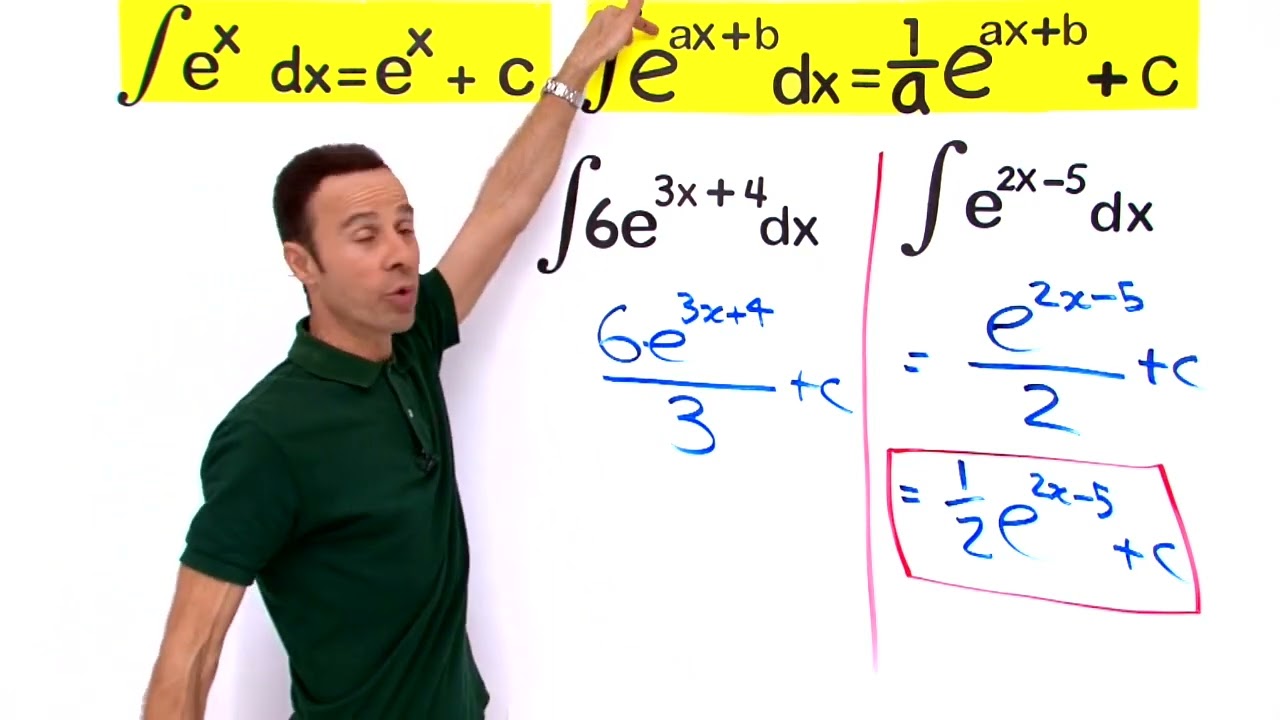 ∫eˣ dx = eˣ + c
∫e^(ax+b) dx = 1/a e^(ax+b) + c
∫6e^(3x+4) dx
6·e^(3x+4)/3 + c
∫e^(2x-5) dx
= e^(2x-5)/2 + c
= 1/2 e^(2x-5) + c